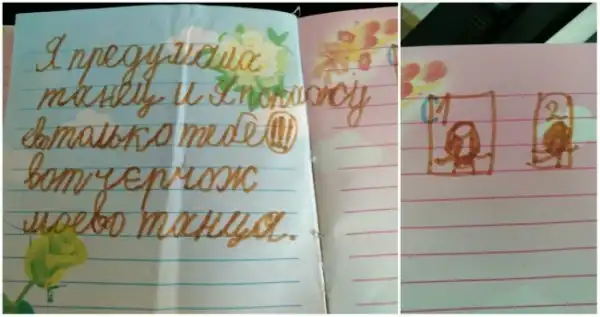 Я предумала
танец и я покожу
евтолько тебе!!!
вот чєрчож
моево танца.
1 2